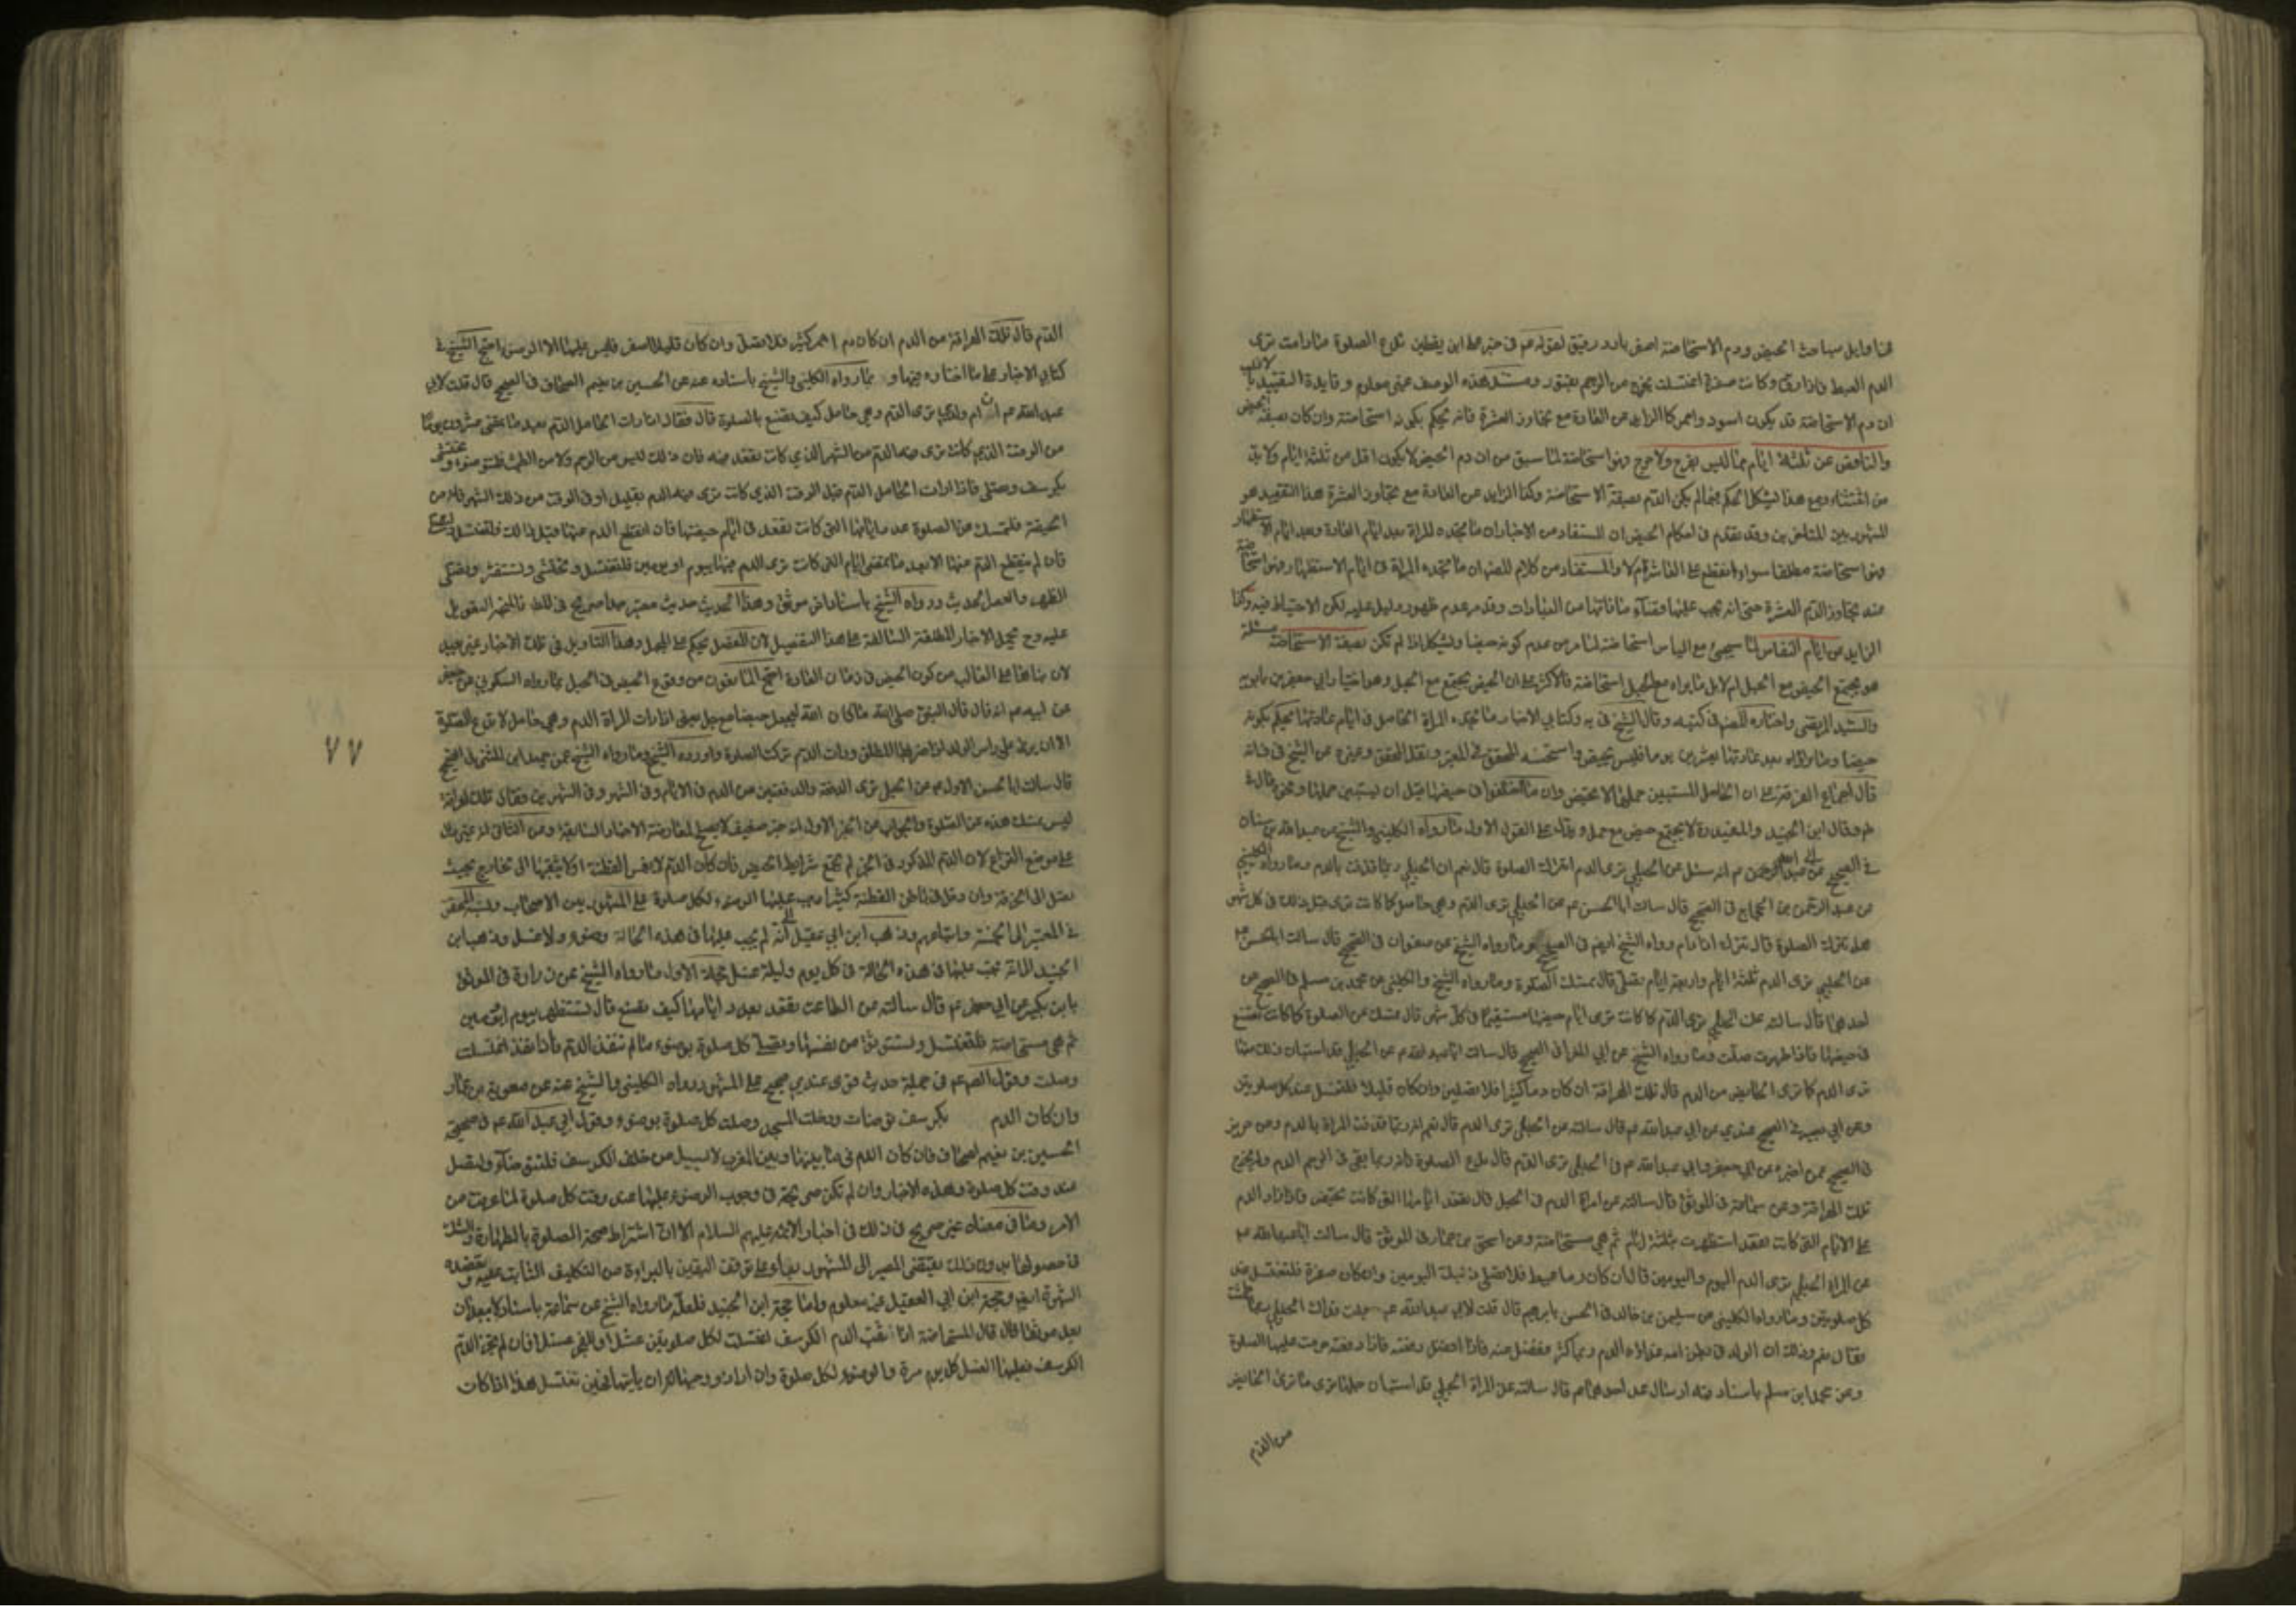 هنا وايل مباحث الحيض ودم الاستحاضة اصفر بارد رقيق لقوله عم في خبر علي ابن يقطين تدع الصلوة مادامت ترى
الدم العبيط فاذا رق وكانت صفرة اغتسلت يخرج من الرحم بفتور ومستند هذه الوصف غير معلوم وفايدة التقييد بالاغلب
ان دم الاستحاضة قد يكون اسود واحمر كالزايد عن العادة مع تجاوز العشرة فانه يحكم بكونه استحاضة وان كان بصفة الحيض
والناقص عن ثلثة ايام مما ليس بقرح ولا جرح فهو استحاضة لما سبق من ان دم الحيض لا يكون اقل من ثلثة ايام ولابد
من اغتشاء ومع هذا ليشكل الحكم فيما لم يكن الدم بصفة الاستحاضة وكذا الزايد عن العادة مع تجاوز العشرة هذا التقييد هو
المشهور بين المتاخرين وقد تقدم في احكام الحيض ان المستفاد من الاخبار ان ما تجده المراة بعد ايام العادة وبعد ايام الاستظهار
فهو استحاضة مطلقا سواء انقطع على العاشر ام لا والمستفاد من كلام المصنف ان ما تجده المراة في ايام الاستظهار فهو استحاضة
عند تجاوز الدم العشرة حتى انه يجب عليها قضاء ما فاتها من العبادات وقد مر عدم ظهور دليل عليه لكن الاحتياط فيه وكذا
الزايد من ايام النفاس لما سيجئ مع الياس استحاضة لما مر من عدم كونه حيضا ويشكل اذا لم تكن بصفة الاستحاضة مسئلة
هو يجتمع الحيض مع الحبل ام لا بل ما يراه مع الحبل استحاضة فالاكثر على ان الحيض يجتمع مع الحبل وهو اختيار ابي جعفر بن بابويه
والسيد المرتضى واختاره المصنف في كتبه وقال الشيخ في يه وكتابي الاخبار ما تجده المراة الحامل في ايام عادتها يحكم بكونه
حيضا وما تراه بعد عادتها بعشرين يوما فليس بحيض واستحسنه المحقق في المعتبر ونقل المحقق وغيره عن الشيخ في ف انه
قال اجماع الفرقة على ان الحامل المستبين حملها لا تحيض وان ما اختلفوا في حيضها قبل ان يستبين حملها ونحوه قال في
ط وقال ابن الجنيد والمفيد ره لا يجتمع حيض مع حمل ويدل على القول الاول ما رواه الكليني والشيخ عن عبد الله بن سنان
في الصحيح عن ابي عبد الله عم انه سئل عن الحبلى ترى الدم اتترك الصلوة قال نعم ان الحبلى ربما قذفت بالدم وما رواه الكليني
عن عبد الرحمن بن الحجاج في الصحيح قال سالت ابا الحسن عم عن الحبلى ترى الدم وهي حامل كما كانت ترى قبل ذلك في كل شهر
هل تترك الصلوة قال تترك اذا دام ورواه الشيخ ايضا في الصحيح وما رواه الشيخ عن صفوان في الصحيح قال سالت ابا الحسن عم
عن الحبلى ترى الدم ثلثة ايام واربعة ايام تصلي قال تمسك عن الصلوة وما رواه الشيخ والكليني عن محمد بن مسلم في الصحيح عن
احدهما قال سالته عن الحبلى ترى الدم كما كانت ترى ايام حيضها مستقيما في كل شهر قال تمسك عن الصلوة كما كانت تصنع
في حيضها فاذا طهرت صلت وما رواه الشيخ عن ابي المغرا في الصحيح قال سالت ابا عبد الله عم عن الحبلى قد استبان ذلك منها
ترى الدم كما ترى الحائض من الدم قال تلك الهراقة ان كان دما كثيرا فلا تصلين وان كان قليلا فلتغتسل عند كل صلوتين
وعن ابي بصير في الصحيح عندي عن ابي عبد الله عم قال سالته عن الحبلى ترى الدم قال نعم انه ربما قذفت المراة بالدم وعن حريز
في الصحيح عمن اخبره عن ابي جعفر وابي عبد الله عم في الحبلى ترى الدم قال تدع الصلوة فانه ربما بقي في الرحم الدم ولم يخرج
تلك الهراقة وعن سماعة في الموثق قال سالته عن امراة رات الدم في الحبل قال تقعد ايامها التي كانت تحيض فاذا زاد الدم
على الايام التي كانت تقعد استظهرت بثلثة ايام ثم هي مستحاضة وعن اسحق بن عمار في الموثق قال سالت ابا عبد الله عم
عن المراة الحبلى ترى الدم اليوم واليومين قال ان كان دما عبيطا فلا تصلي ذينك اليومين وان كان صفرة فلتغتسل عند
كل صلوتين وما رواه الكليني عن سليمن بن خالد في الحسن بابرهيم قال قلت لابي عبد الله عم جعلت فداك الحبلى ربما طمثت
فقال نعم وذلك ان الولد في بطن امه غذاؤه الدم وربما كثر ففضل عنه فاذا افضل دفعته فاذا دفعته حرمت عليها الصلوة
وعن محمد ابن مسلم باسناد فيه ارسال عن احدهما عم قال سالته عن المراة الحبلى قد استبان حملها ترى ما ترى الحائض
من الدم
الدم قال تلك الهراقة من الدم ان كان دم احمر كثير فلا تصل وان كان قليلا اصفر فليس عليها الا الوضوء احتج الشيخ في
كتابي الاخبار على ما اختاره فيهما و بما رواه الكليني والشيخ باسناده عنه عن الحسين بن نعيم الصحاف في الصحيح قال قلت لابي
عبد الله عم ان ام ولدي ترى الدم وهي حامل كيف تصنع بالصلوة قال فقال اذا رات الحامل الدم بعد ما يمضي عشرون يوما
من الوقت الذي كانت ترى فيه الدم من الشهر الذي كانت تقعد فيه فان ذلك ليس من الرحم ولا من الطمث فلتتوضوء وتحتشي
بكرسف وتصلي فاذا رات الحامل الدم قبل الوقت الذي كانت ترى فيه الدم بقليل او في الوقت من ذلك الشهر فانه من
الحيضة فلتمسك عن الصلوة عدد ايامها التي كانت تقعد في ايام حيضها فان انقطع الدم عنها قبل ذلك فلتغتسل ولتصل
فان لم ينقطع الدم عنها الا بعد ما تمضي ايام التي كانت ترى الدم فيها بيوم او يومين فلتغتسل وتحتشي وتستثفر وتصلي
الظهر والعصر الحديث ورواه الشيخ باسناد اخر موثق وهذا الحديث حديث معتبر صالح صريح في المط فالمتجه التعويل
عليه وح تحمل الاخبار المطلقة السالفة على هذا التفصيل لان المفصل يحكم على المجمل وهذا التاويل في تلك الاخبار غير بعيد
لان بناءها على الغالب من كون الحيض في زمان العادة احتج المانعون من وقوع الحيض في الحبل بما رواه السكوني عن جعفر
عن ابيه عم انه قال قال النبي صلى الله ما كان الله ليجعل حيضا مع حبل يعني اذا رات المراة الدم وهي حامل لا تدع الصلوة
الا ان يرى على راس الولد اذا ضربها الطلق ورات الدم تركت الصلوة واورده الشيخ وما رواه الشيخ عن حميد ابن المثنى في الصحيح
قال سالت ابا الحسن الاول عم عن الحبلى ترى الدفقة والدفقتين من الدم في الايام وفي الشهر وفي الشهرين فقال تلك الهراقة
ليس تمسك هذه عن الصلوة والجواب عن الخبر الاول انه خبر ضعيف لا يصلح لمعارضة الاخبار السابقة وعن الثاني انه غير دال
على موضع النزاع لان الدم المذكور في الخبر لم يجمع شرايط الحيض فان كان الدم لا يغمس القطنة اولا يثقبها الى خارج بحيث
تصل الى الخرقة وان دخل في باطن القطنة كثيرا يجب عليها الوضوء لكل صلوة على المشهور بين الاصحاب ونسبه المحقق
في المعتبر الى الخمسة واتباعهم وذهب ابن ابي عقيل الى انه لم يجب عليها في هذه الحالة وضوء ولا غسل وذهب ابن
الجنيد الى انه تجب عليها في هذه الحالة في كل يوم وليلة غسل حجة الاول ما رواه الشيخ عن زرارة في الموثق
بابن بكير عن ابي جعفر عم قال سالته عن الطامث تقعد بعدد ايامها كيف تصنع قال تستظهر بيوم او يومين
ثم هي مستحاضة فلتغتسل وتستوثق من نفسها وتصلي كل صلوة بوضوء ما لم ينفذ الدم فاذا نفذ اغتسلت
وصلت وقول الصم عم في جملة حديث قوي عندي صحيح على المشهور رواه الكليني والشيخ عنه عن معوية بن عمار
وان كان الدم بكرسف توضات ودخلت المسجد وصلت كل صلوة بوضوء وقول ابي عبد الله عم في صحيحة
الحسين بن نعيم الصحاف فان كان الدم فيما بينها وبين المغرب لا يسيل من خلف الكرسف فلتتوضا ولتصل
عند وقت كل صلوة وهذه الاخبار وان لم تكن صريحة في وجوب الوضوء عليها عند وقت كل صلوة لما عرفت من
الامر وما في معناه غير صريح في ذلك في اخبار الائمة عليهم السلام الا ان اشتراط صحة الصلوة بالطهارة والشك
في حصولها بدون ذلك يقتضي المصير الى المشهور بناء على توقف اليقين بالبراءة من التكليف الثابت عليه وتعضده
الشهرة ايضا وحجة ابن ابي العقيل غير معلوم واما حجة ابن الجنيد فلعله ما رواه الشيخ عن سماعة باسناد لا يبعد ان
يعد موثقا قال قال المستحاضة اذا ثقب الدم الكرسف اغتسلت لكل صلوتين غسلا وللفجر غسلا فان لم يجز الدم
الكرسف فعليها الغسل كل يوم مرة والوضوء لكل صلوة وان اراد زوجها ان ياتيها فحين تغتسل هذا اذا كان
٧٧